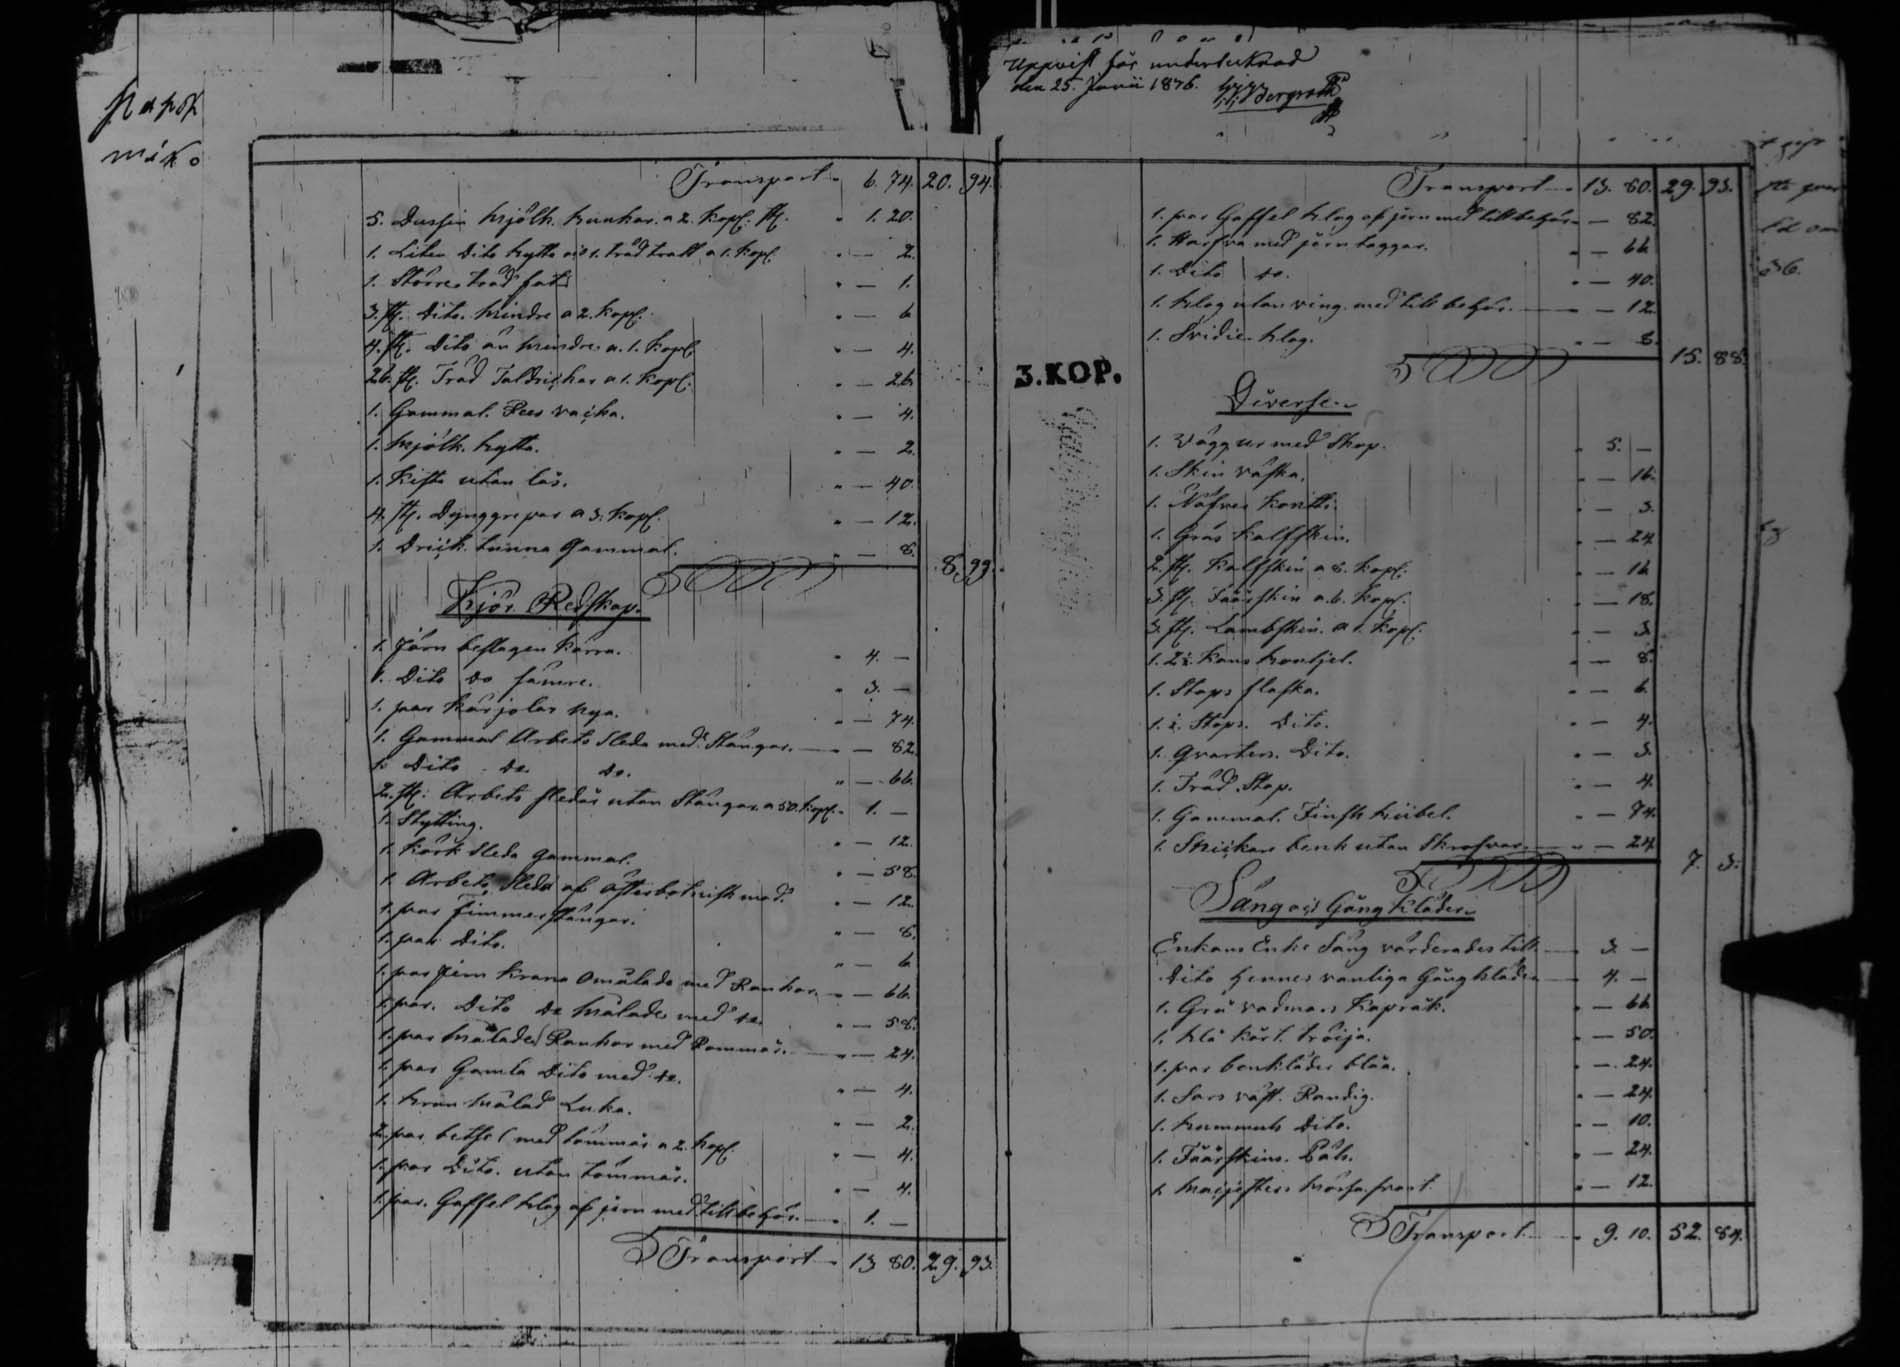 Transport 6. 74. 20. 94.
5. Dussin Mjölk bunkar. a 2. Kop. st. " 1. 20.
1. Liten Dito bytta o 1. trädtratt a 1. Kop. " — 2.
1. Större träd fat " — 1.
3. st. Dito. Mindre a 2. Kop. " — 6
4. st. Dito än Mindre a. 1. Kop. " — 4.
26. st. Träd Taldrickar a 1. Kop. " — 26
1. Gammal. " — 4.
1. Mjölk. bytta. " — 2.
1. Kista utan lås. " — 40.
4. st. Dynggrepar a 3. Kop. " — 12.
1. Drick. tunna Gammal. " — 8.
8. 99.
Kjör Redskap.
1. Järn beslagen Kärra. " 4. —
1. Dito do sämre. " 3. —
1. par Kärjolar nya. " — 74.
1. Gammal Arbets Släda med Stångar. — — 82.
1. Dito do. do. " — 66.
2. st. Arbets slädar utan Stångar a 50. Kop. " 1. —
1. Stytting. " — 12.
1. Släda Gammal. " — 58.
1. Arbets Släda af " — 12.
1. par Timmer stångar. " — 8.
1. par Dito. " — 6
1. par omålade med Rankor. " — 66.
1. par. Dito do Målade med do. " — 58.
1. par Målade Rankor med Rommor. " — 24.
1. par Gamla Dito med do. " — 4.
1. Målad Luka. " — 2.
2. par betsel med tömmar a 2. Kop. " — 4.
1. par Dito. utan tömmar. " — 4.
1. par. Gaffel Plog af jern med tillbehör. " 1. —
Transport 13 80. 29. 93.
Uppvist för undertecknad
den 25. Junii 1876.
Transport 13. 80. 29. 93.
1. par Gaffel Plog af jern med tillbehör — 82.
1. Harfva med järn taggar. " — 66.
1. Dito do. " — 40.
1. Plog utan ving. med till behör. — 12.
1. Svidie Plog. " — 8.
15. 88.
3. KOP.
Diverse
1. Vägg ur med Skop. " 5. —
1. Skin väska. " — 16.
1. Näfver Kontti. " — 3.
1. Grås Kalfskin. " — 24
2. st. Kalfskin a 8. Kop. " — 16
3. st. Fåårskin a. 6. Kop. " — 18.
3. st. Lambskin. a 1. Kop. " — 3
1. 2½. Kans " — 8.
1. Stops flaska. " — 6.
1. ½. Stops. Dito. " — 4.
1. Qvarters. Dito. " — 3
1. Träd. Stop. " — 4.
1. Gammal. Finsk bibel. " — 74.
1. Snickare benk utan Skrufvar. " — 24
7. 3.
Säng o Gång Kläder
Enkans Enke Säng värderades till 3. —
Dito hennes vanliga Gång kläder 4. —
1. Grå vadmars Kapråk. " — 66
1. blå kårt. tröija. " — 50.
1. par benkläder blåa. " — 24.
1. Sars väst. Randig. " — 24.
1. Dito. " — 10.
1. Fåårskins. Päls. " — 24.
1. mössa svart. " — 12.
Transport 9. 10. 52. 84.